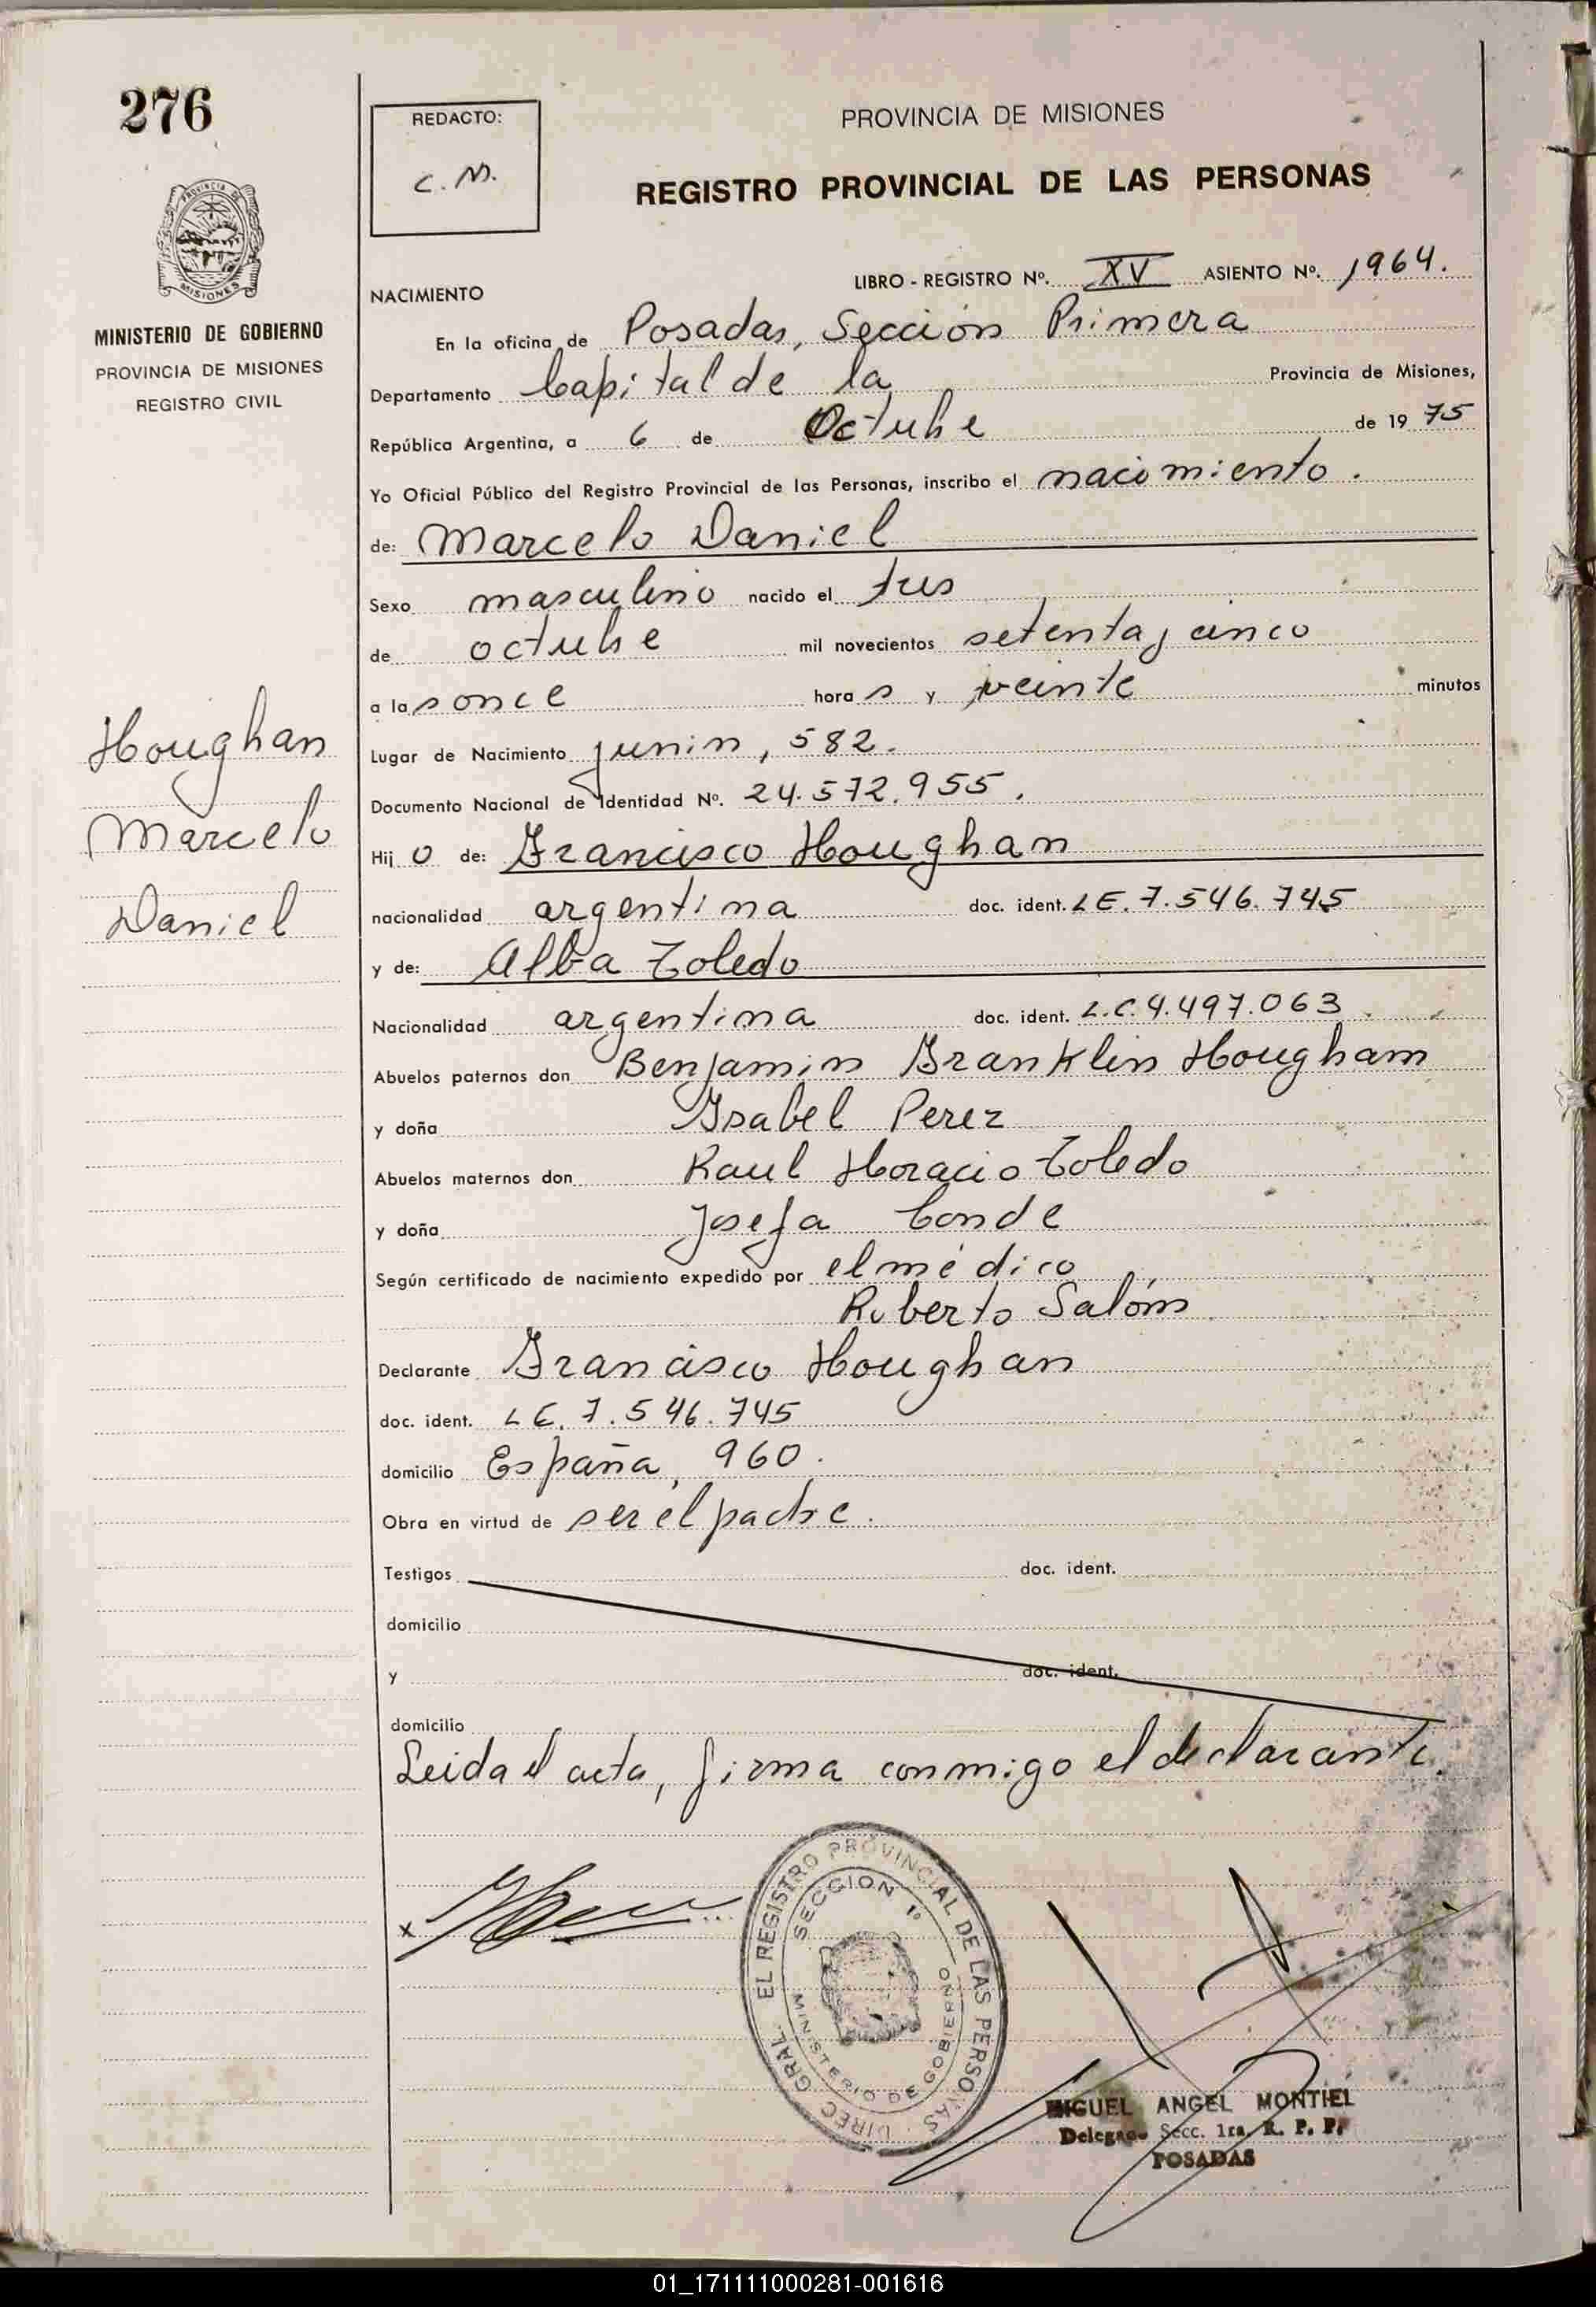 276
PROVINCIA DE MISIONES
MINISTERIO DE GOBIERNO
PROVINCIA DE MISIONES
REGISTRO CIVIL
Houghan
Marcelo
Daniel
REDACTO:
C. M.
PROVINCIA DE MISIONES
REGISTRO PROVINCIAL DE LAS PERSONAS
LIBRO - REGISTRO Nº. XV ASIENTO Nº. 1964.
NACIMIENTO
En la oficina de Posadas, Sección Primera
Departamento Capital de la Provincia de Misiones,
República Argentina, a 6 de Octubre de 1975
Yo Oficial Público del Registro Provincial de las Personas, inscribo el nacimiento.
de: Marcelo Daniel
Sexo masculino nacido el tres
de octubre mil novecientos setenta y cinco
a las once horas y veinte minutos
Lugar de Nacimiento Junin, 582.
Documento Nacional de Identidad Nº. 24.572.955.
Hijo de: Francisco Hougham
nacionalidad argentina doc. ident. L E. 7.546.745
y de: Alba Toledo
Nacionalidad argentina doc. ident. L.C. 4.497.063
Abuelos paternos don Benjamin Franklin Hougham
y doña Isabel Perez
Abuelos maternos don Raul Horacio Toledo
y doña Josefa Conde
Según certificado de nacimiento expedido por el médico
Roberto Salóm
Declarante Francisco Houghan
doc. ident. L E. 7.546.745
domicilio España, 960.
Obra en virtud de ser el padre.
Testigos doc. ident.
domicilio
y doc. ident.
domicilio
Leida el acta, firma conmigo el declarante.
x
DIREC GRAL. EL REGISTRO PROVINCIAL DE LAS PERSONAS
SECCION 1º
MINISTERIO DE GOBIERNO
MIGUEL ANGEL MONTIEL
Delegado Secc. 1ra. R. P. P.
POSADAS
01_171111000281-001616